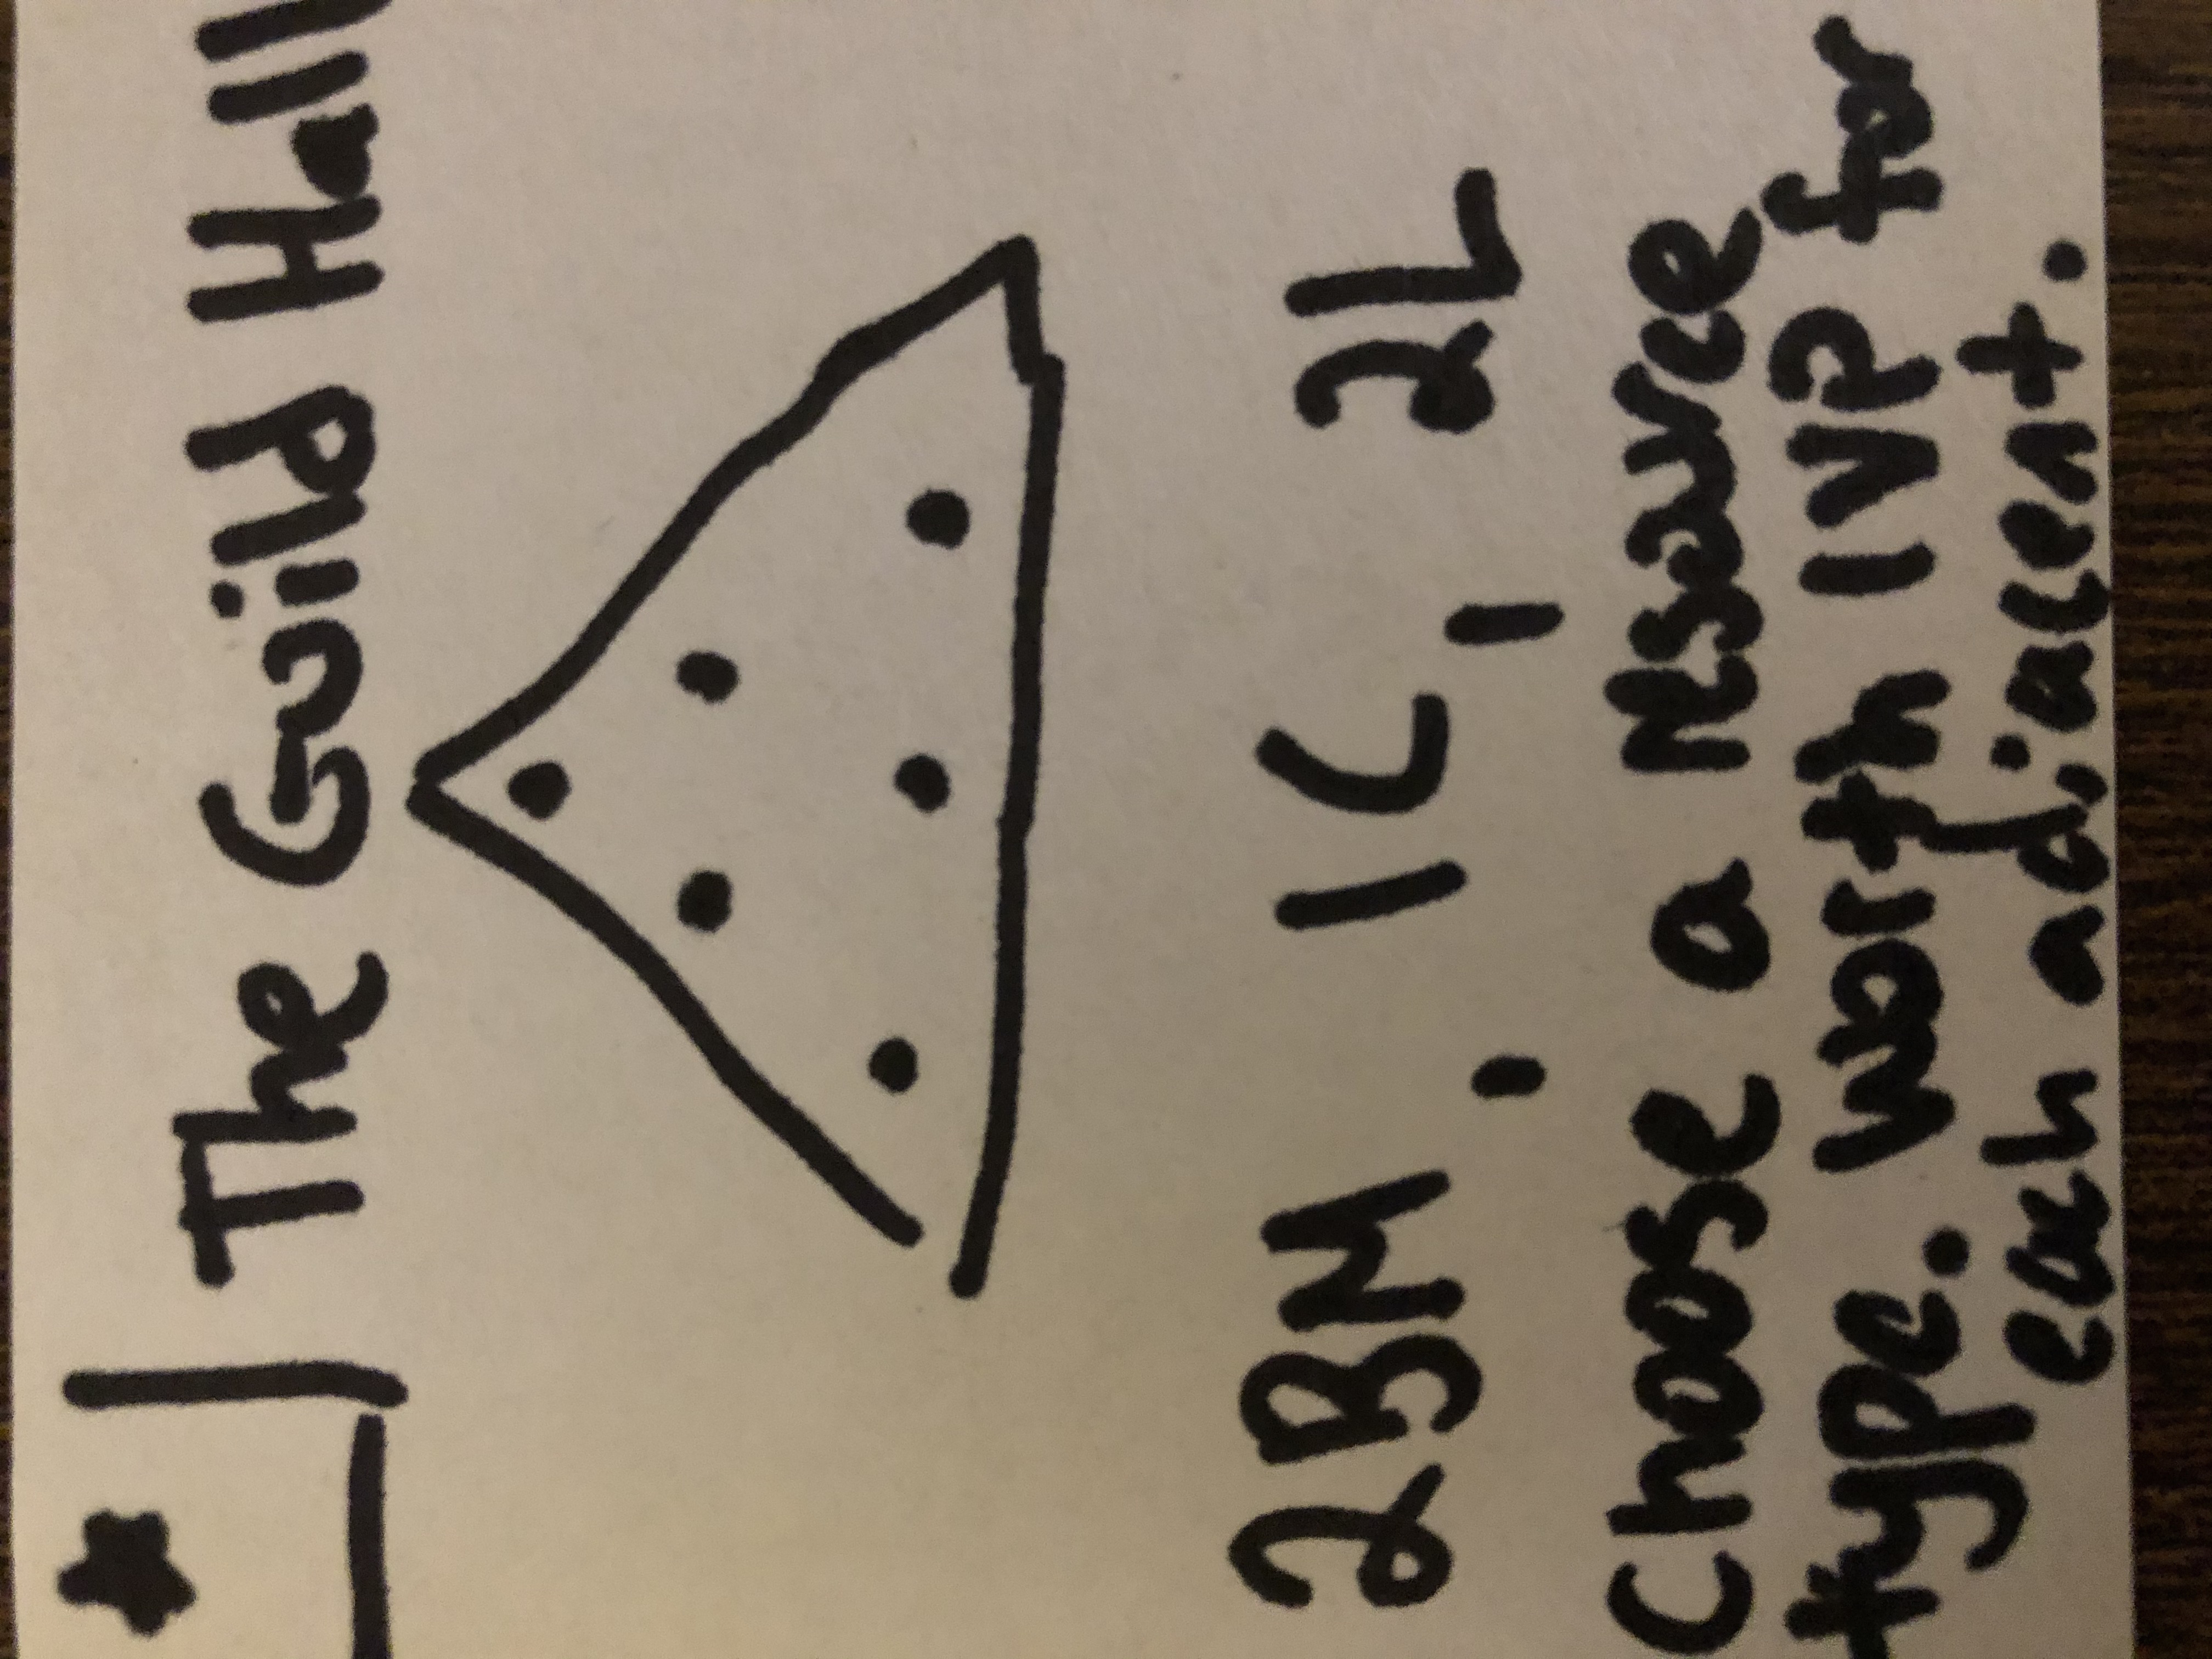 The Guild Hall
2BM, 1C, 2L
Choose a resource
type. worth 1VP for
each adjacent.